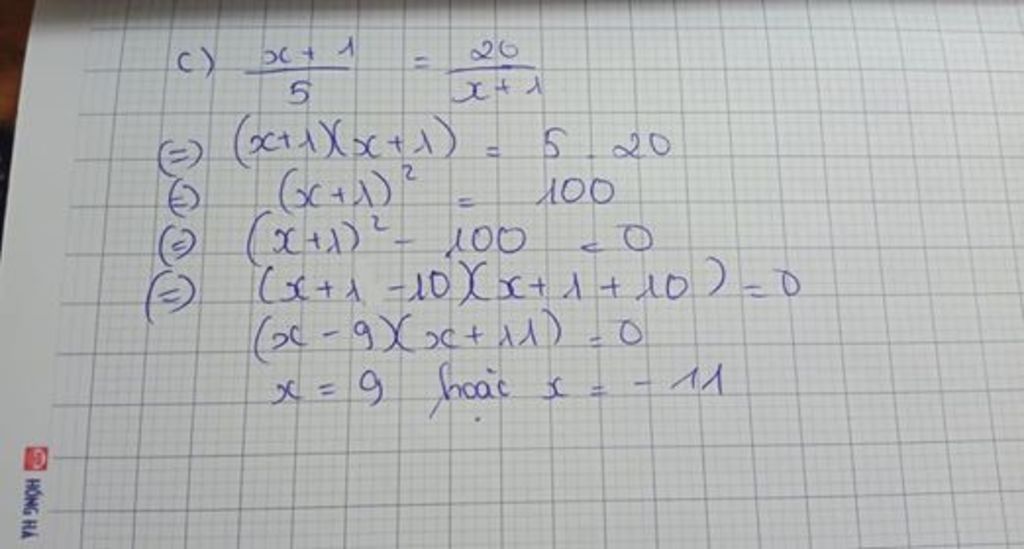 c) \frac{x+1}{5} = \frac{20}{x+1}
(=) (x+1)(x+1) = 5 . 20
(=) (x+1)² = 100
(=) (x+1)² - 100 = 0
(=) (x+1 -10)(x+1+10) = 0
(x-9)(x+11) = 0
x = 9 hoặc x = -11
HỒNG HÀ